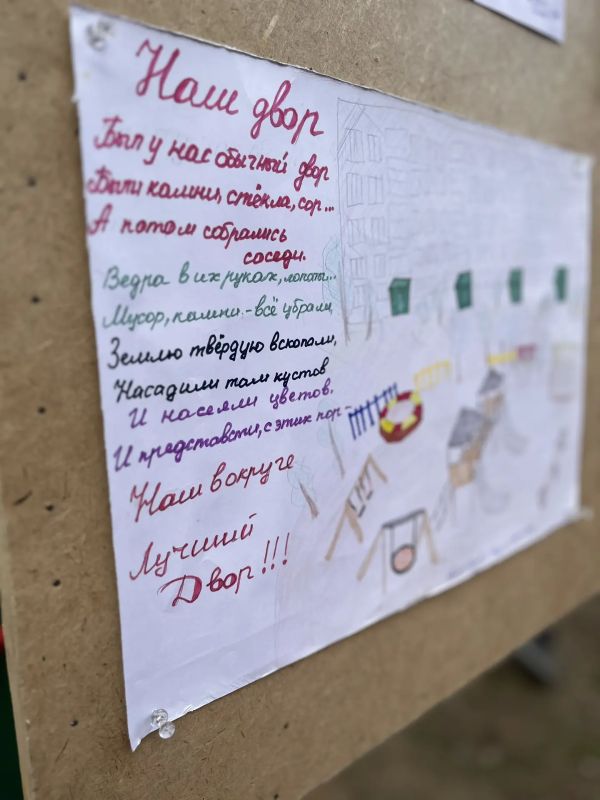 Наш двор
Был у нас обычный двор
Были камни, стёкла, сор...
А потом собрались
соседи.
Ведра в их руках, лопаты...
Мусор, камни - всё убрали,
Землю твёрдую вскопали,
Насадили там кустов
И насеяли цветов.
И представсти, с этих пор -
Наш вокруге
Лучший
Двор!!!